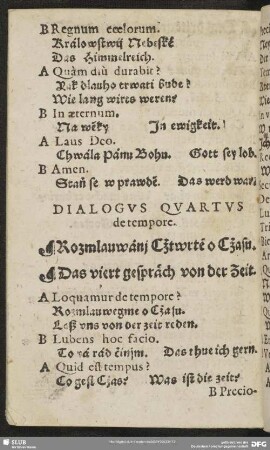 B Regnum cœlorum.
Králowstwij Nebeské
Das Himmelreich.
A Quàm diù durabit?
Yak dlauho trwati bude?
Wie lang wires weren?
B In æternum.
Na wěky    In ewigkeit.
A Laus Deo.
Chwála Pánu Bohu.    Gott sey lob.
B Amen.
Staň se w prawdě.    Das werd war.
DIALOGVS QVARTVS
de tempore.
Rozmlauwánj Cžtwrté o Cžasu.
Das viert gespräch von der Zeit.
A Loquamur de tempore?
Rozmlauwegme o Cžasu.
Laß vns von der zeit reden.
B Lubens hoc facio.
To rá rád činjm.    Das thue ich gern.
A Quid est tempus?
Co gest Cžas?    Was ist die zeit?
B Precio-
SLUB
DFG